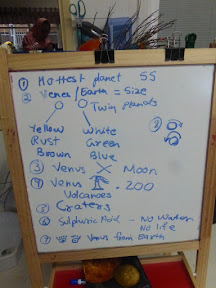 ① Hottest planet SS
② Venus/Earth = Size
Twin planets
Yellow White
Rust Green
Brown Blue
③ Venus X Moon
④ Venus 200
Volcanoes
⑤ Craters
⑥ Sulphuric Acid - No Water
No life
⑦ Venus from Earth
⑧